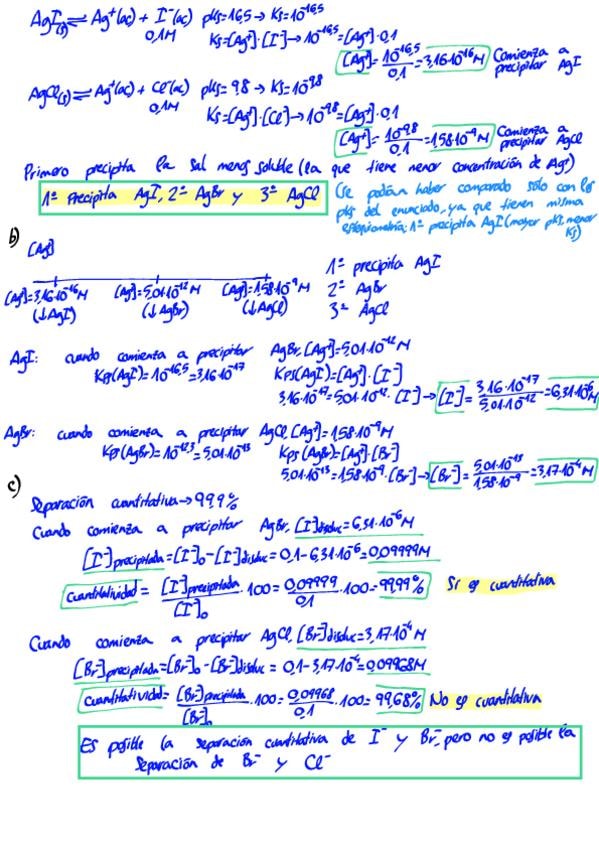 AgI(s) ⇌ Ag⁺(ac) + I⁻(ac) pKs=16,5 → Ks=10^-16,5
0,1M Ks=[Ag⁺]·[I⁻] → 10^-16,5=[Ag⁺]·0,1
[Ag⁺]=10^-16,5/0,1=3,16·10^-16 M Comienza a precipitar AgI
AgCl(s) ⇌ Ag⁺(ac) + Cl⁻(ac) pKs=9,8 → Ks=10^-9,8
0,1M Ks=[Ag⁺]·[Cl⁻] → 10^-9,8=[Ag⁺]·0,1
[Ag⁺]=10^-9,8/0,1=1,58·10^-9 M Comienza a precipitar AgCl
Primero precipita la sal menos soluble (la que tiene menor concentración de Ag⁺)
1º Precipita AgI, 2º AgBr y 3º AgCl
(se podían haber comparado sólo con los
pKs del enunciado, ya que tienen misma
estequiometría: 1º precipita AgI (mayor pKs, menor
Ks)
b) [Ag⁺]
[Ag⁺]=3,16·10^-16 M [Ag⁺]=5,01·10^-12 M [Ag⁺]=1,58·10^-9 M
(↓AgI) (↓AgBr) (↓AgCl)
1º precipita AgI
2º AgBr
3º AgCl
AgI: cuando comienza a precipitar AgBr, [Ag⁺]=5,01·10^-12 M
Kps(AgI)=10^-16,5=3,16·10^-17 Kps(AgI)=[Ag⁺]·[I⁻]
3,16·10^-17=5,01·10^-12·[I⁻] → [I⁻]=3,16·10^-17/5,01·10^-12=6,31·10^-6 M
AgBr: cuando comienza a precipitar AgCl, [Ag⁺]=1,58·10^-9 M
Kps(AgBr)=10^-12,3=5,01·10^-13 Kps(AgBr)=[Ag⁺]·[Br⁻]
5,01·10^-13=1,58·10^-9·[Br⁻] → [Br⁻]=5,01·10^-13/1,58·10^-9=3,17·10^-4 M
c) Separación cuantitativa → 99,9%
Cuando comienza a precipitar AgBr, [I⁻]disoluc=6,31·10^-6 M
[I⁻]precipitada=[I⁻]₀-[I⁻]disoluc=0,1-6,31·10^-6=0,09999M
Cuantitatividad=[I⁻]precipitada/[I⁻]₀·100=0,09999/0,1·100=99,99% Si es cuantitativa
Cuando comienza a precipitar AgCl, [Br⁻]disoluc=3,17·10^-4 M
[Br⁻]precipitada=[Br⁻]₀-[Br⁻]disoluc=0,1-3,17·10^-4=0,09968M
Cuantitatividad=[Br⁻]precipitada/[Br⁻]₀·100=0,09968/0,1·100=99,68% No es cuantitativa
Es posible la separación cuantitativa de I⁻ y Br⁻, pero no es posible la
separación de Br⁻ y Cl⁻